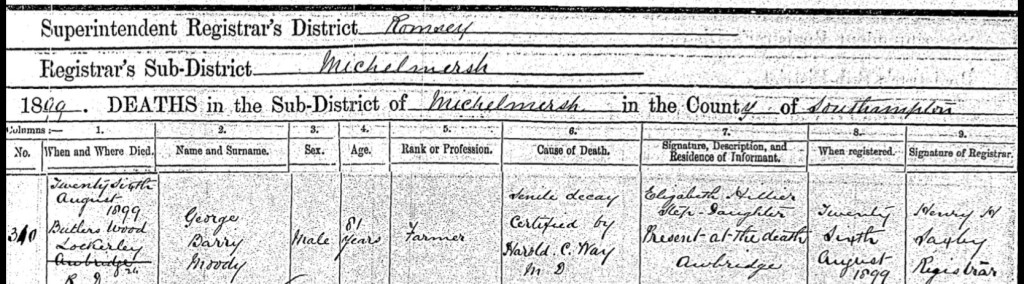 Superintendent Registrar's District Romsey
Registrar's Sub-District Michelmersh
1899. DEATHS in the Sub-District of Michelmersh in the County of Southampton
Columns:— 1. 2. 3. 4. 5. 6. 7. 8. 9.
No. When and Where Died. Name and Surname. Sex. Age. Rank or Profession. Cause of Death. Signature, Description, and Residence of Informant. When registered. Signature of Registrar.
340
Twenty Sixth
August
1899
Butlers Wood
Lockerley
Awbridge
R. D
George
Barry
Moody
Male
81
years
Farmer
Senile decay
Certified by
Harold. C. Way
M D
Elizabeth Hillier
Step-Daughter
Present at the death
Awbridge
Twenty
Sixth
August
1899
Henry H
Saxby
Registrar